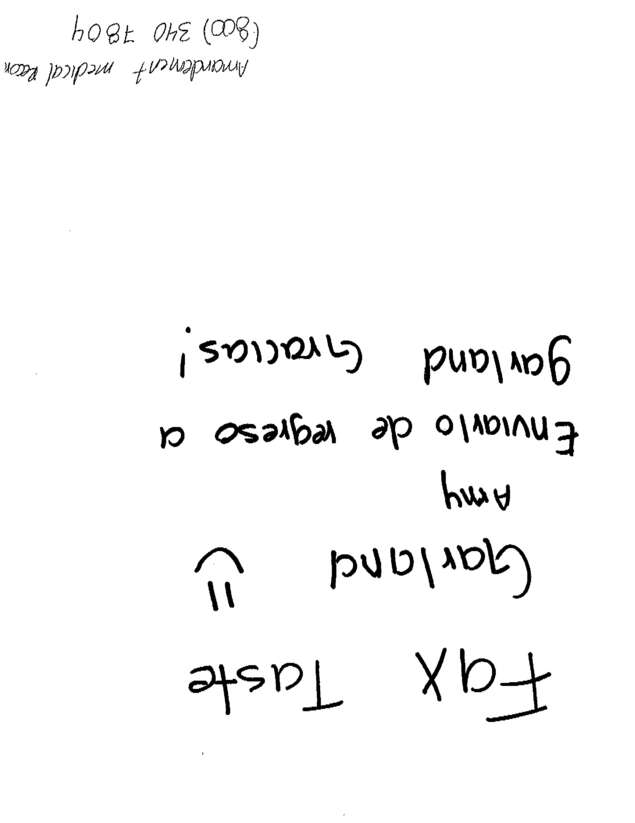 Fax Taste
Garland
Amy
Enviarlo de regreso a
garland Gracias!
Amandement medical Recor
(800) 340 7804